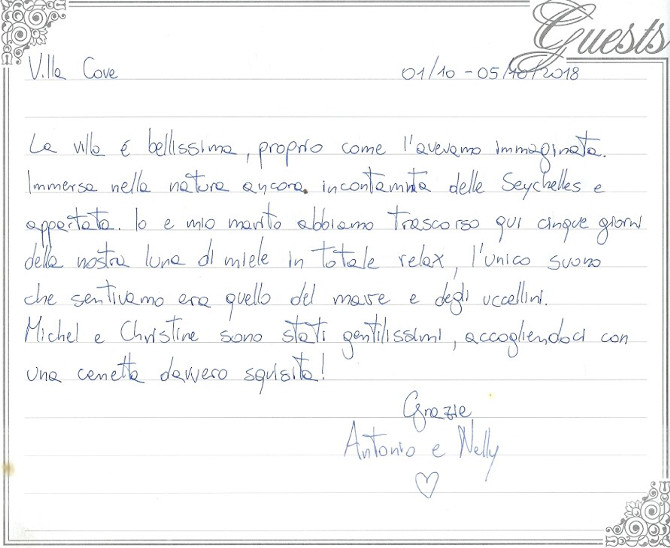 Guests
Villa Cove 01/10 - 05/10/2018
La villa é bellissima, proprio come l'avevamo immaginata.
Immersa nella natura ancora incontamita delle Seychelles e
appartata. Io e mio marito abbiamo trascorso qui cinque giorni
della nostra luna di miele in totale relax, l'unico suono
che sentivamo era quello del mare e degli uccellini.
Michel e Christine sono stati gentilissimi, accogliendoci con
una cenetta davvero squisita!
Grazie
Antonio e Nelly